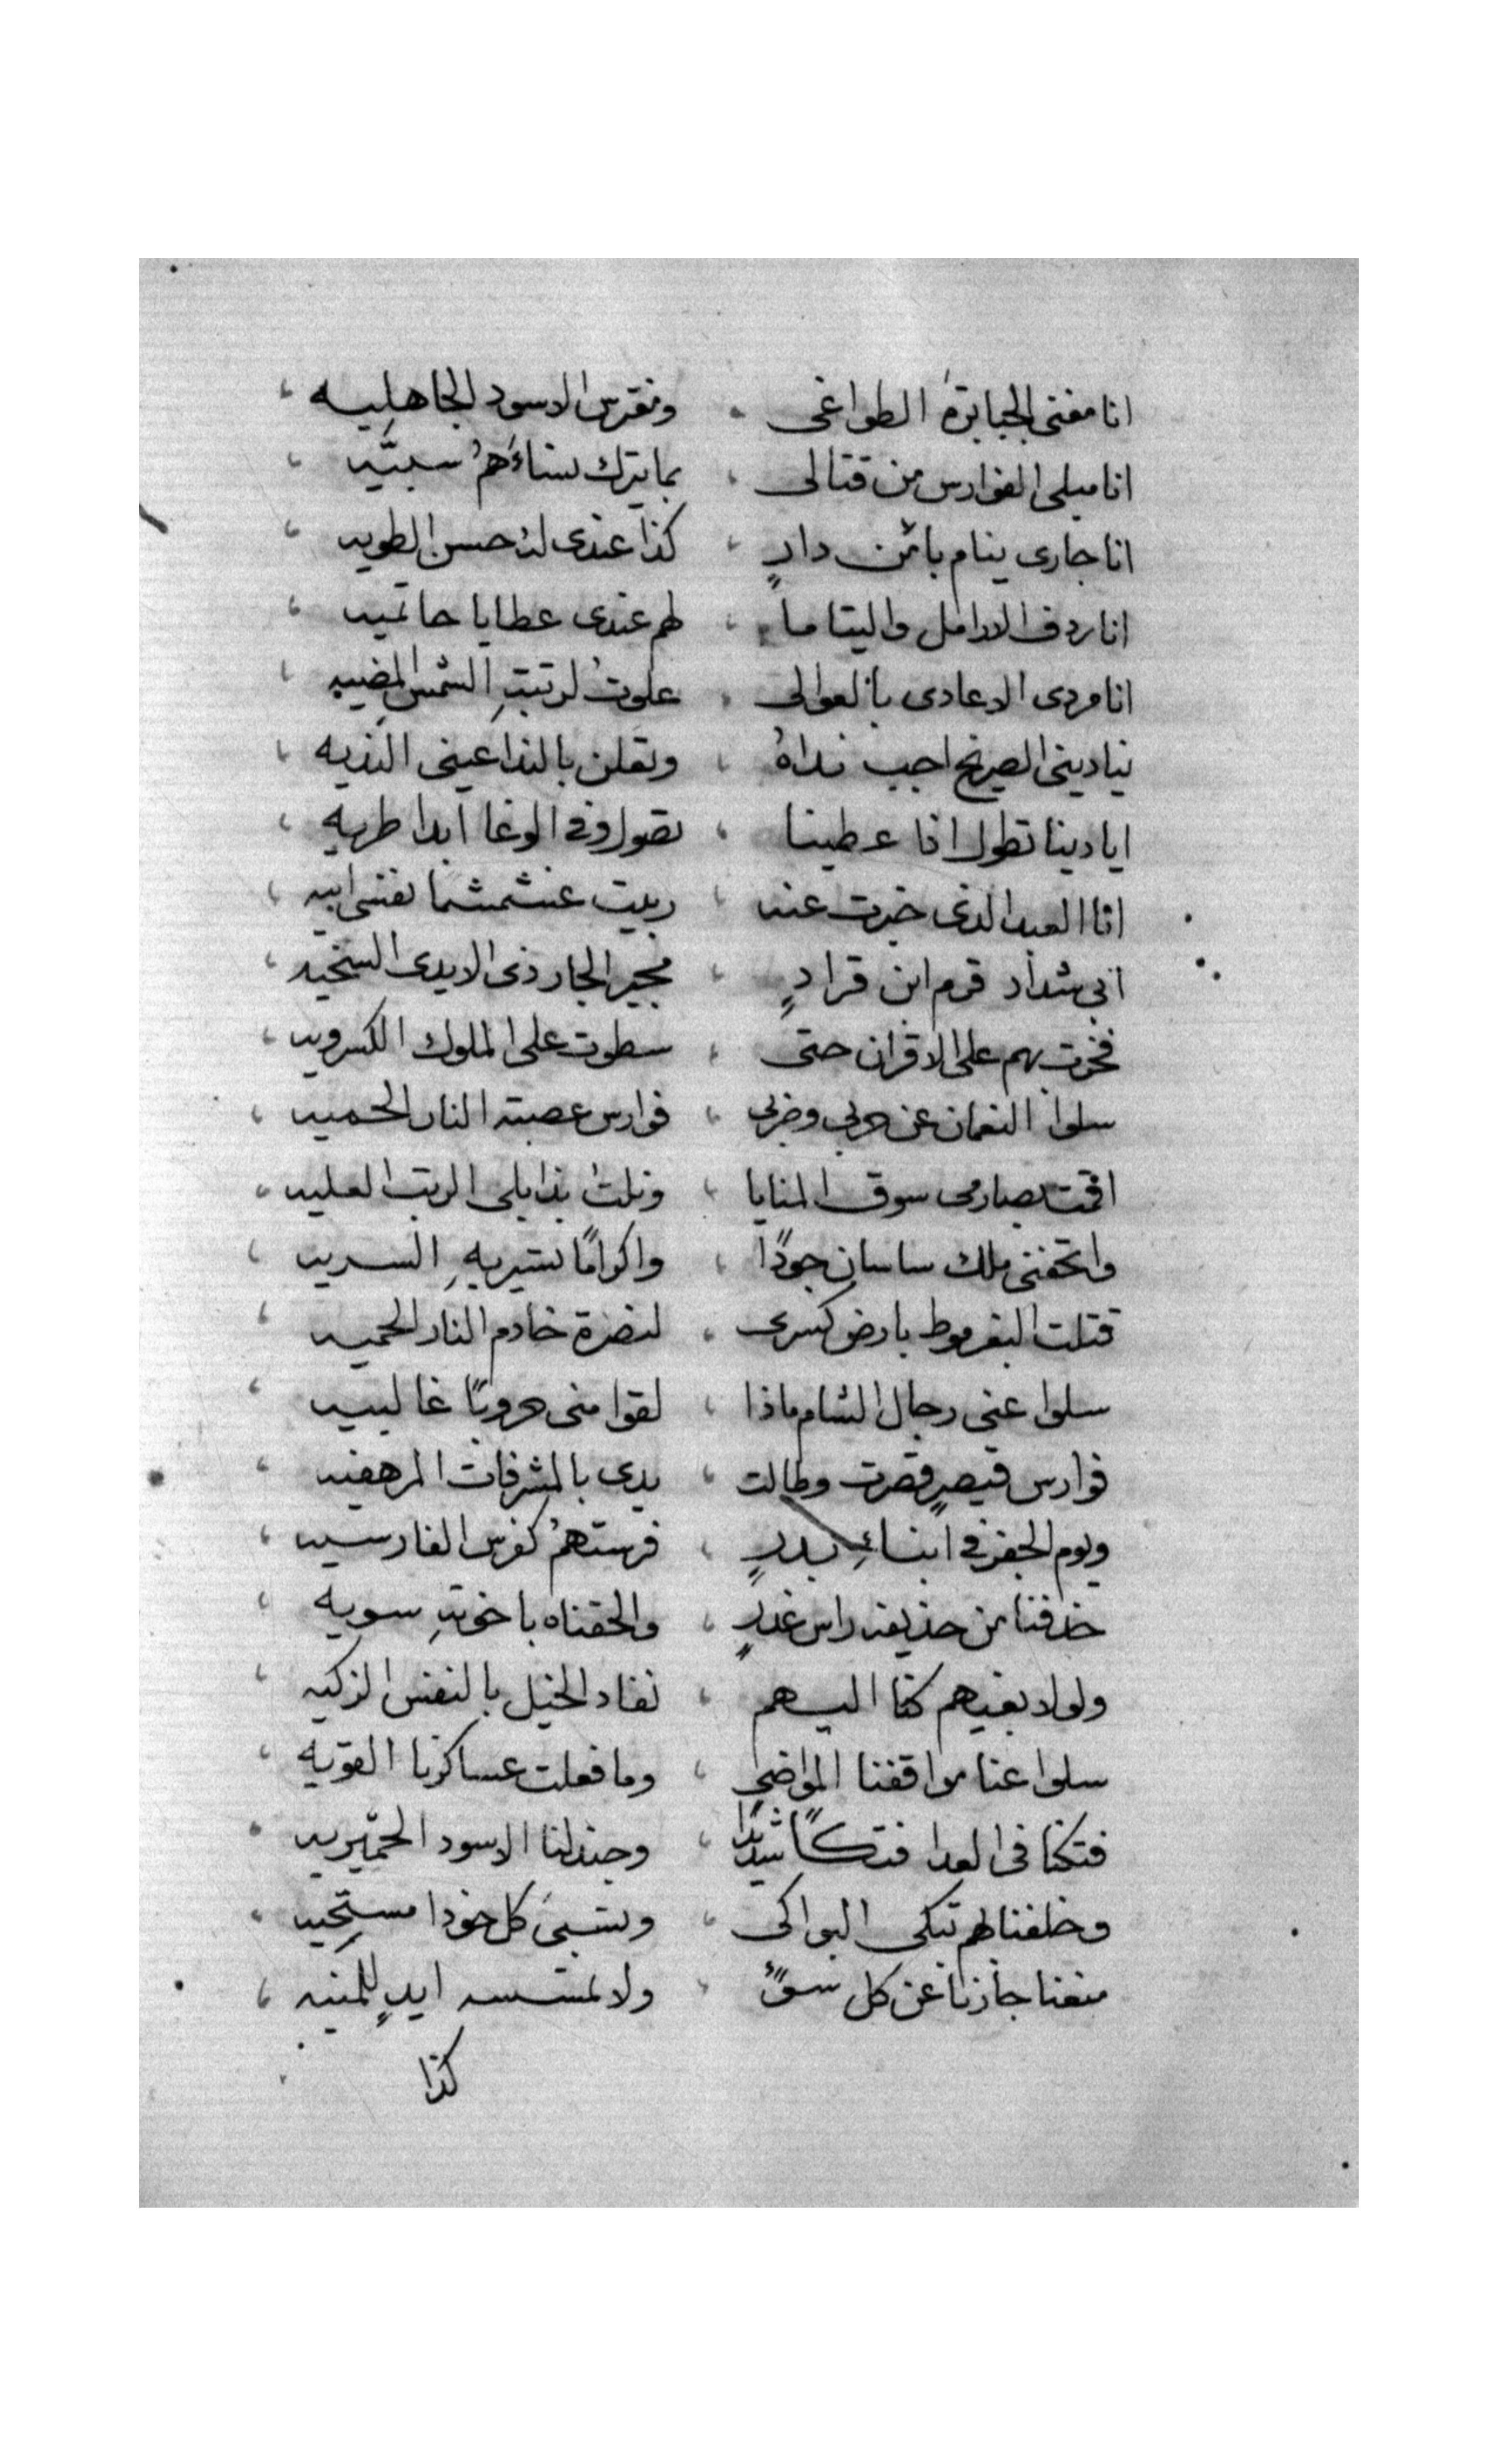 انا مفنى الجبابرة الطواغى ، ومفرس الاسود الجاهليه ،
انا مبلى الفوارس من قتالى ، بما يترك نساءهُم سبيّه ،
انا جارى ينام بائمن دارٍ ، كذا عندى له حسن الطويه ،
انا ردف الارامل واليتاما ، لهم عندى عطايا حاتميه ،
انا مردى الاعادى بالعوالى ، علوتُ لرتبةِ الشمس المضيه ،
ينادينى الصريخ اجيب نداهُ ، وتعلن بالندا عينى النديه ،
ايادينا تطول اذا عطينا ، تصول وفى الوغا ابدا طريه ،
انا العبد الذى خبرت عنه ، ربيت عشمشما نفسى ابيه ،
ابى شداد قرم ابن قرادٍ ، مجير الجار ذى الايدى السخيه ،
فخرت بهم على الاقران حتى ، سطوت على الملوك الكسرويه ،
سلوا النعمان عن حربى وضربى ، فوارس عصبة النار الحميه ،
اقمت بصارمى سوق المنايا ، ونلت بذابلى الرتب العليه ،
واتحفنى ملك ساسان جودًا ، واكرامًا بتسيريهِ السريه ،
قتلت البغرموط بارض كسرى ، لنصرة خادم النار الحميه ،
سلوا عنى رجال الشام ماذا ، لقوا منى حروبًا غالبيه ،
فوارس قيصرٍ قصرت وطالت ، يدى بالمشرفات المرهفيه ،
ويوم الجفر فى ابناءِ بدرٍ ، فرستهمُ كفرس الفارسيه ،
حذفنا من حذيفه راس غدرٍ ، والحقناه باخوتهِ سويه ،
ولولا بغيهم كنا اليهم ، نقاد الخيل بالنفس الزكيه ،
سلوا عنا مواقفنا المواضى ، وما فعلت عساكرنا القويه ،
فتكنا فى العدا فتكاً شديدًا ، وجندلنا الاسود الحميريه ،
وخلفنا لهم تبكى البواكى ، ونسبى كل خودا مستحيه ،
منعنا جارنا عن كل سوءٍ ، ولا تمسسه ايدٍ للمنيه ،
كذا